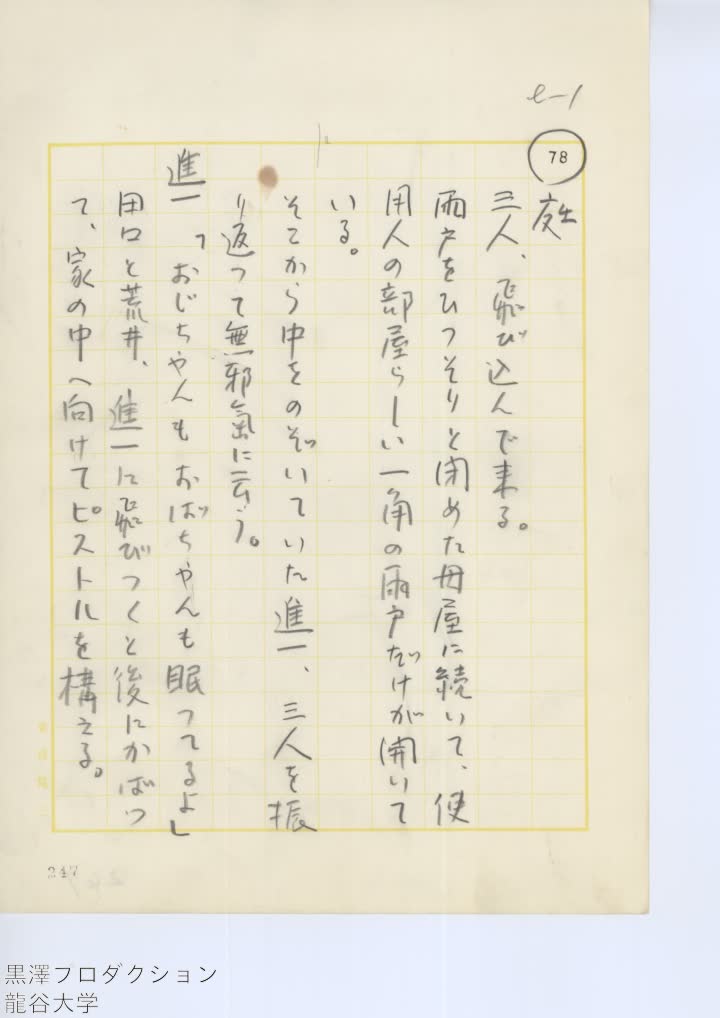 e-1
78
庭
三人、飛び込んで来る。
雨戸をひつそりと閉めた母屋に続いて、使
用人の部屋らしい一角の雨戸だけが開いて
いる。
そこから中をのぞいていた進一、三人を振
り返つて無邪氣に云う。
進一「おじちやんもおばちやんも眠つてるよ」
田口と荒井、進一に飛びつくと後にかばつ
て、家の中へ向けてピストルを構える。
247
黒澤プロダクション
龍谷大学